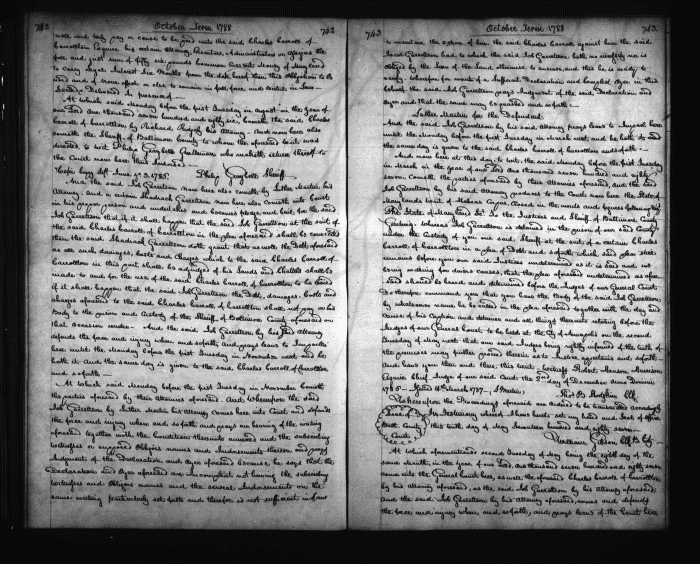 742 October Term 1788 742
well and truly pay or cause to be paid unto the said Charles Carroll of
Carrollton Esquire his certain Attorney Executors Administrators or assigns the
full and just sum of fifty six pounds common current Money of Maryland
to carry legal Interest Six Months from the date hereof then this obligation to be
void and of none effect or else to remain in full force and virtue in Law
Sealed & Delivered in the presence of
At which said Monday before the first Tuesday in August in the year of
our Lord one thousand seven hundred and eighty six cometh the said Charles
Carroll of Carrollton by Richard Ridgely his Attorney And now here also
cometh the Sheriff of Baltimore County to whom the aforesaid writ was
directed to wit Philip Graybell Gentleman who maketh return thereof to
the Court now here thus endorsed
Philip Graybell Sheriff
And the said Job Garretson now here also cometh by Luther Martin his
Attorney and a certain Shadrach Garretson now here also cometh into Court
in his proper person and undertakes and becomes pledge and bail for the said
Job Garretson that if it shall happen that the said Job Garretson at the suit of
the said Charles Carroll of Carrollton in the plea aforesaid shall be convicted
then the said Shadrach Garretson doth grant that as well the Debt aforesaid
as all such damages, Costs and Charges which to the said Charles Carroll of
Carrollton in this part shall be adjudged of his Lands and Chattels shall be
made to and for the use of the said Charles Carroll of Carrollton to be levied
if it shall happen that the said Job Garretson the Debt, damages, Costs and
charges aforesaid to the said Charles Carroll of Carrollton shall not pay or his
Body to the prison and Custody of the Sheriff of Baltimore County aforesaid on
that occasion render And the said Job Garretson by his said Attorney
defends the force and injury when and so forth and prays leave to Imparle
here until the Monday before the first Tuesday in November next and he
hath it and the same day is given to the said Charles Carroll of Carrollton
also and so forth
At which said Monday before the first Tuesday in November cometh
the parties aforesaid by their Attornies aforesaid. And Whereupon the said
Job Garretson by Luther Martin his Attorney comes here into Court and defends
the force and injury when and so forth and prays an hearing of the writing
aforesaid together with the conditions thereunto annexed and the subscribing
witnesses or supposed obligors names and Indorsements thereon and prays
Judgment of the Declaration and Oyer aforesaid because he says that the
Declaration and Oyer aforesaid are Insufficient not having the subscribing
witnesses and obligors names and the several Indorsements on the
same writing particularly set forth and therefore is not sufficient in Law
743 October Term 1788 743
to maintain the action of him the said Charles Carroll against him the said
Job Garretson had to which the said Job Garretson hath no necessity nor is
obliged by the Law of the Land aforesaid to answer and this he is ready to
verify wherefore for want of a sufficient Declaration and Oyer in this
behalf the said Job Garretson prays Judgment of the said Declaration and
Oyer and that the same may be quashed and so forth
Luther Martin for the Defendant
And the said Job Garretson by his said Attorney prays leave to Imparle here
until the Monday before the first Tuesday in March next and he hath it and
the same day is given to the said Charles Carroll of Carrollton and so forth
And now here at this day to wit, the said Monday before the first Tuesday
in March in the year of our Lord one thousand seven hundred and eighty
seven Cometh the parties aforesaid by their Attornies aforesaid, and the said
Job Garretson by his said Attorney produces to the Court now here the State of
Maryland writ of Habeas Corpus Closed in the words and figures following to wit
The State of Maryland Sct. To the Justices and Sheriff of Baltimore County
Greeting: whereas Job Garretson is detained in the prison of our said County
under the Custody of you our said Sheriff at the suit of a certain Charles
Carroll of Carrollton in a plea of Debt and so forth which plea still
remains before you our said Justices undetermined as it is said and we
being willing for divers causes, that the plea aforesaid undetermined as afore-
said should be heard and determined before the Judges of our General Court
do therefore command you that you have the Body of the said Job Garretson
by whatsoever name he be called in the plea aforesaid together with the day and
cause of his Caption and detainer and all things thereunto relating before the
Judges of our General Court to be held at the City of Annapolis on the second
Tuesday of May next that our said Judges being rightly informed of the truth of
the premises may further proceed therein as to Justice appertains and so forth
And have you then and there this writ. Witness Robert Hanson Harrison
Esquire Chief Judge of our said Court the 2nd day of December Anno Domini
Whereupon the Proceedings aforesaid are ordered to be transmitted accordingly
In Testimony whereof I have hereto set my hand and Seal of office
this tenth day of May Seventeen hundred and eighty seven
William Gibson Clk B. Cty
At which aforementioned second Tuesday of May being the eighth day of the
same Month, in the year of our Lord one thousand seven hundred and eighty seven
came into the General Court here, as well the aforesaid Charles Carroll of Carrollton
by his attorney aforesaid, as the said Job Garretson by his attorney aforesaid,
And the said Job Garretson by his attorney aforesaid, comes and defends
the force and injury when, and so forth, and prays leave of the Court here